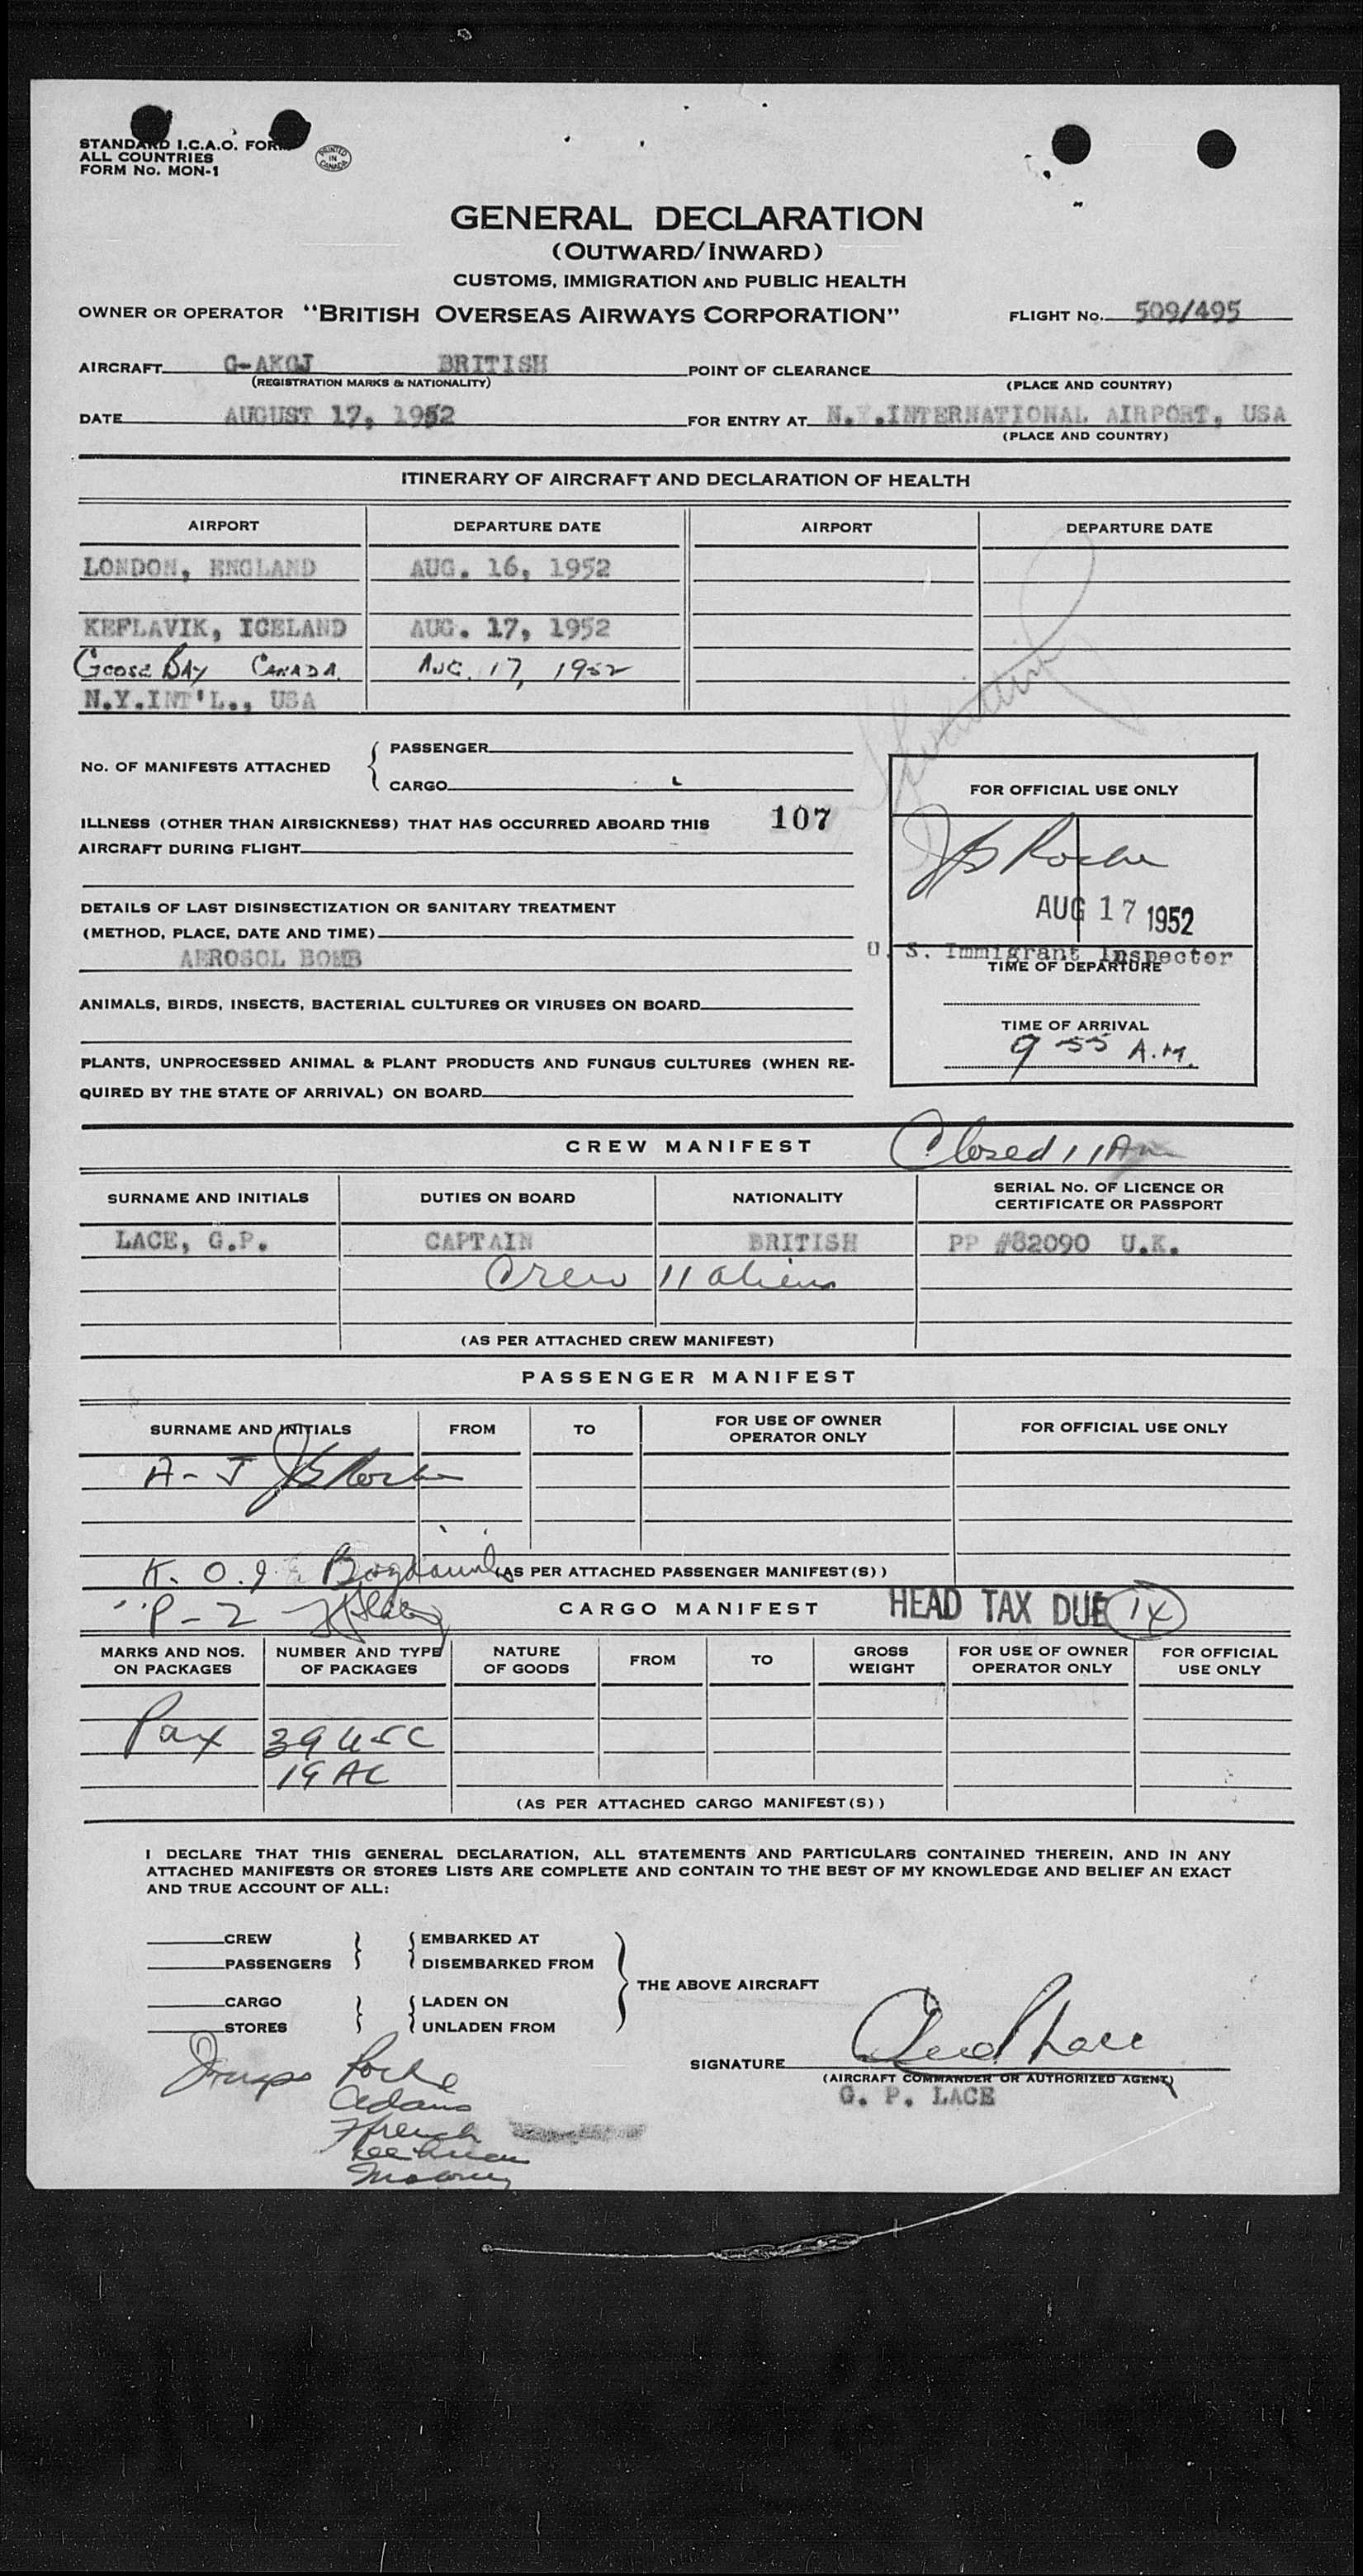 STANDARD I.C.A.O. FORM
ALL COUNTRIES
FORM No. MON-1
PRINTED IN CANADA
GENERAL DECLARATION
(OUTWARD/INWARD)
CUSTOMS, IMMIGRATION AND PUBLIC HEALTH
OWNER OR OPERATOR "BRITISH OVERSEAS AIRWAYS CORPORATION" FLIGHT No. 509/495
AIRCRAFT G-AKGJ BRITISH POINT OF CLEARANCE
(REGISTRATION MARKS & NATIONALITY) (PLACE AND COUNTRY)
DATE AUGUST 17, 1952 FOR ENTRY AT N.Y.INTERNATIONAL AIRPORT, USA
(PLACE AND COUNTRY)
ITINERARY OF AIRCRAFT AND DECLARATION OF HEALTH
AIRPORT DEPARTURE DATE AIRPORT DEPARTURE DATE
LONDON, ENGLAND AUG. 16, 1952
KEFLAVIK, ICELAND AUG. 17, 1952
GOOSE BAY CANADA. AUG. 17, 1952
N.Y.INT'L., USA
No. OF MANIFESTS ATTACHED
PASSENGER
CARGO
ILLNESS (OTHER THAN AIRSICKNESS) THAT HAS OCCURRED ABOARD THIS 107
AIRCRAFT DURING FLIGHT
DETAILS OF LAST DISINSECTIZATION OR SANITARY TREATMENT
(METHOD, PLACE, DATE AND TIME)
AEROSOL BOMB
ANIMALS, BIRDS, INSECTS, BACTERIAL CULTURES OR VIRUSES ON BOARD
PLANTS, UNPROCESSED ANIMAL & PLANT PRODUCTS AND FUNGUS CULTURES (WHEN RE-
QUIRED BY THE STATE OF ARRIVAL) ON BOARD
FOR OFFICIAL USE ONLY
JB Roche
AUG 17 1952
U. S. Immigrant Inspector
TIME OF DEPARTURE
TIME OF ARRIVAL
9 55 A.M.
CREW MANIFEST Closed 11 Am
SURNAME AND INITIALS DUTIES ON BOARD NATIONALITY SERIAL No. OF LICENCE OR
CERTIFICATE OR PASSPORT
LACE, G.P. CAPTAIN BRITISH PP #82090 U.K.
Crew 11 aliens
(AS PER ATTACHED CREW MANIFEST)
PASSENGER MANIFEST
SURNAME AND INITIALS FROM TO FOR USE OF OWNER
OPERATOR ONLY FOR OFFICIAL USE ONLY
A - J JB Roche
K. O.
(AS PER ATTACHED PASSENGER MANIFEST(S))
P - Z
CARGO MANIFEST HEAD TAX DUE 14
MARKS AND NOS.
ON PACKAGES NUMBER AND TYPE
OF PACKAGES NATURE
OF GOODS FROM TO GROSS
WEIGHT FOR USE OF OWNER
OPERATOR ONLY FOR OFFICIAL
USE ONLY
Pax 39 USC
19 AC
(AS PER ATTACHED CARGO MANIFEST(S))
I DECLARE THAT THIS GENERAL DECLARATION, ALL STATEMENTS AND PARTICULARS CONTAINED THEREIN, AND IN ANY
ATTACHED MANIFESTS OR STORES LISTS ARE COMPLETE AND CONTAIN TO THE BEST OF MY KNOWLEDGE AND BELIEF AN EXACT
AND TRUE ACCOUNT OF ALL:
CREW EMBARKED AT
PASSENGERS DISEMBARKED FROM
THE ABOVE AIRCRAFT
CARGO LADEN ON
STORES UNLADEN FROM
Roche
Adams
French
SIGNATURE
(AIRCRAFT COMMANDER OR AUTHORIZED AGENT)
G. P. LACE